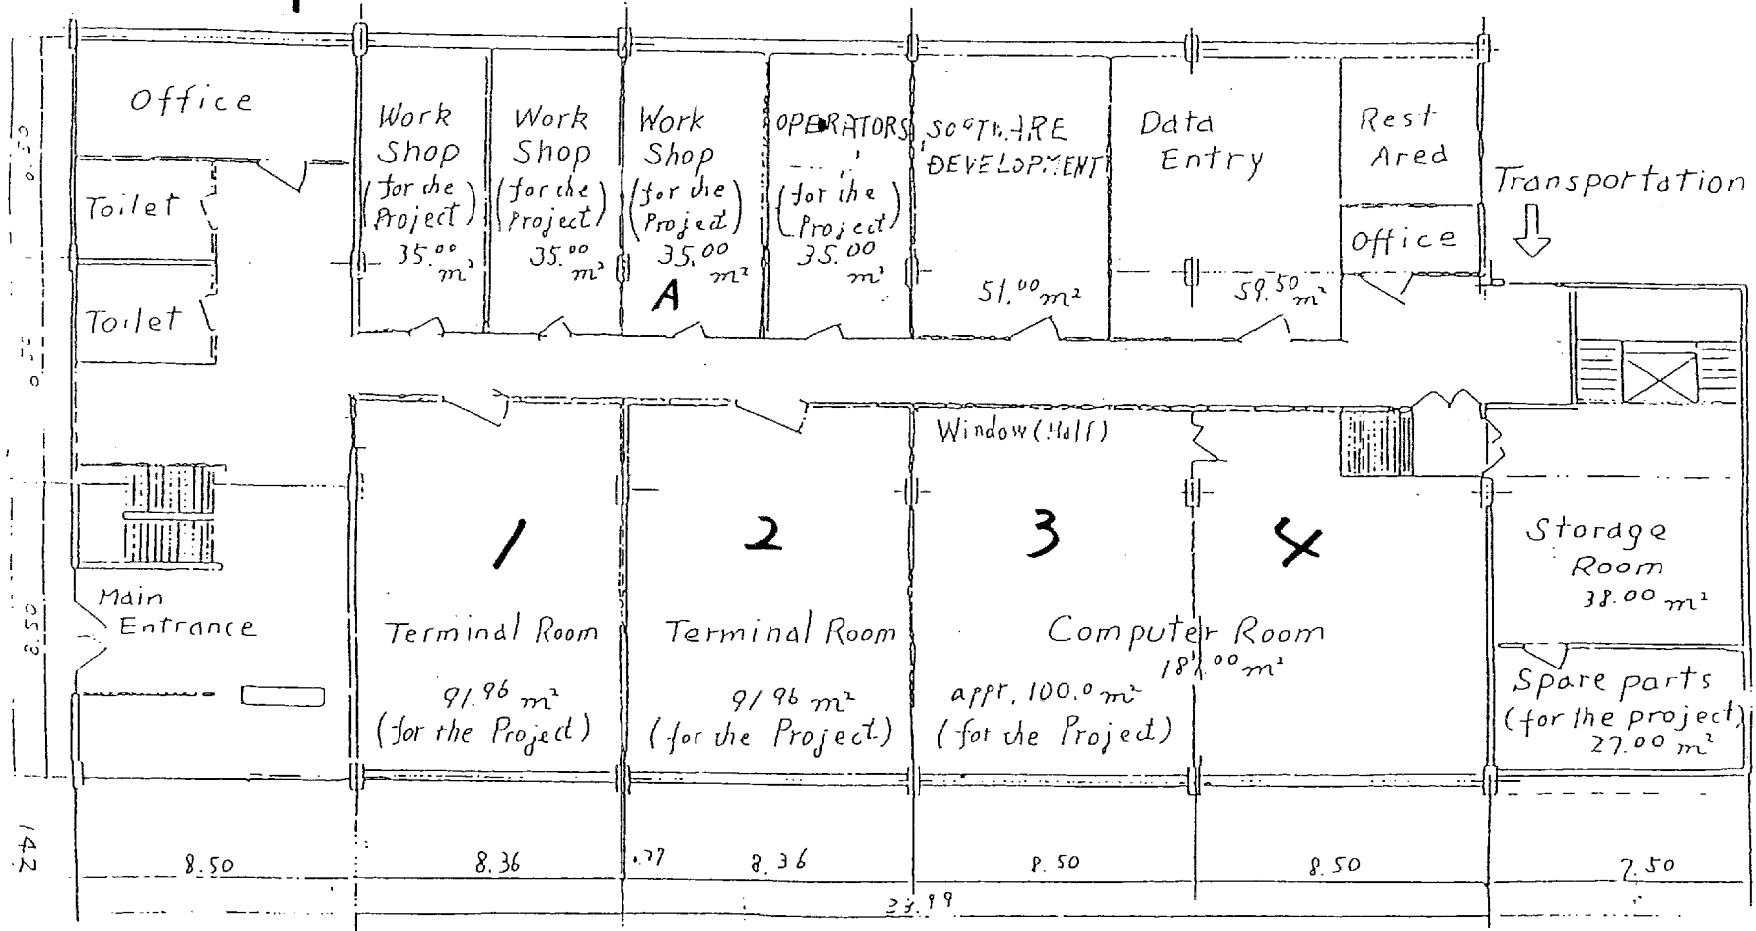 Office
Toilet
Toilet
Work
Shop
(for the
Project)
35.00
m²
Work
Shop
(for the
Project)
35.00
m²
Work
Shop
(for the
Project)
35.00
m²
A
OPERATORS
(for the
Project)
35.00
m²
DEVELOPMENT
51.00 m²
Data
Entry
59.50 m²
Rest
Ared
Office
Transportation
Window (Half)
1
2
3
4
Main
Entrance
Terminal Room
91.96 m²
(for the Project)
Terminal Room
91 96 m²
(for the Project)
Computer Room
appr. 100.0 m²
(for the Project)
Storage
Room
38.00 m²
Spare parts
(for the project)
27.00 m²
8.50
8.36
.27
8.36
8.50
8.50
7.50
142